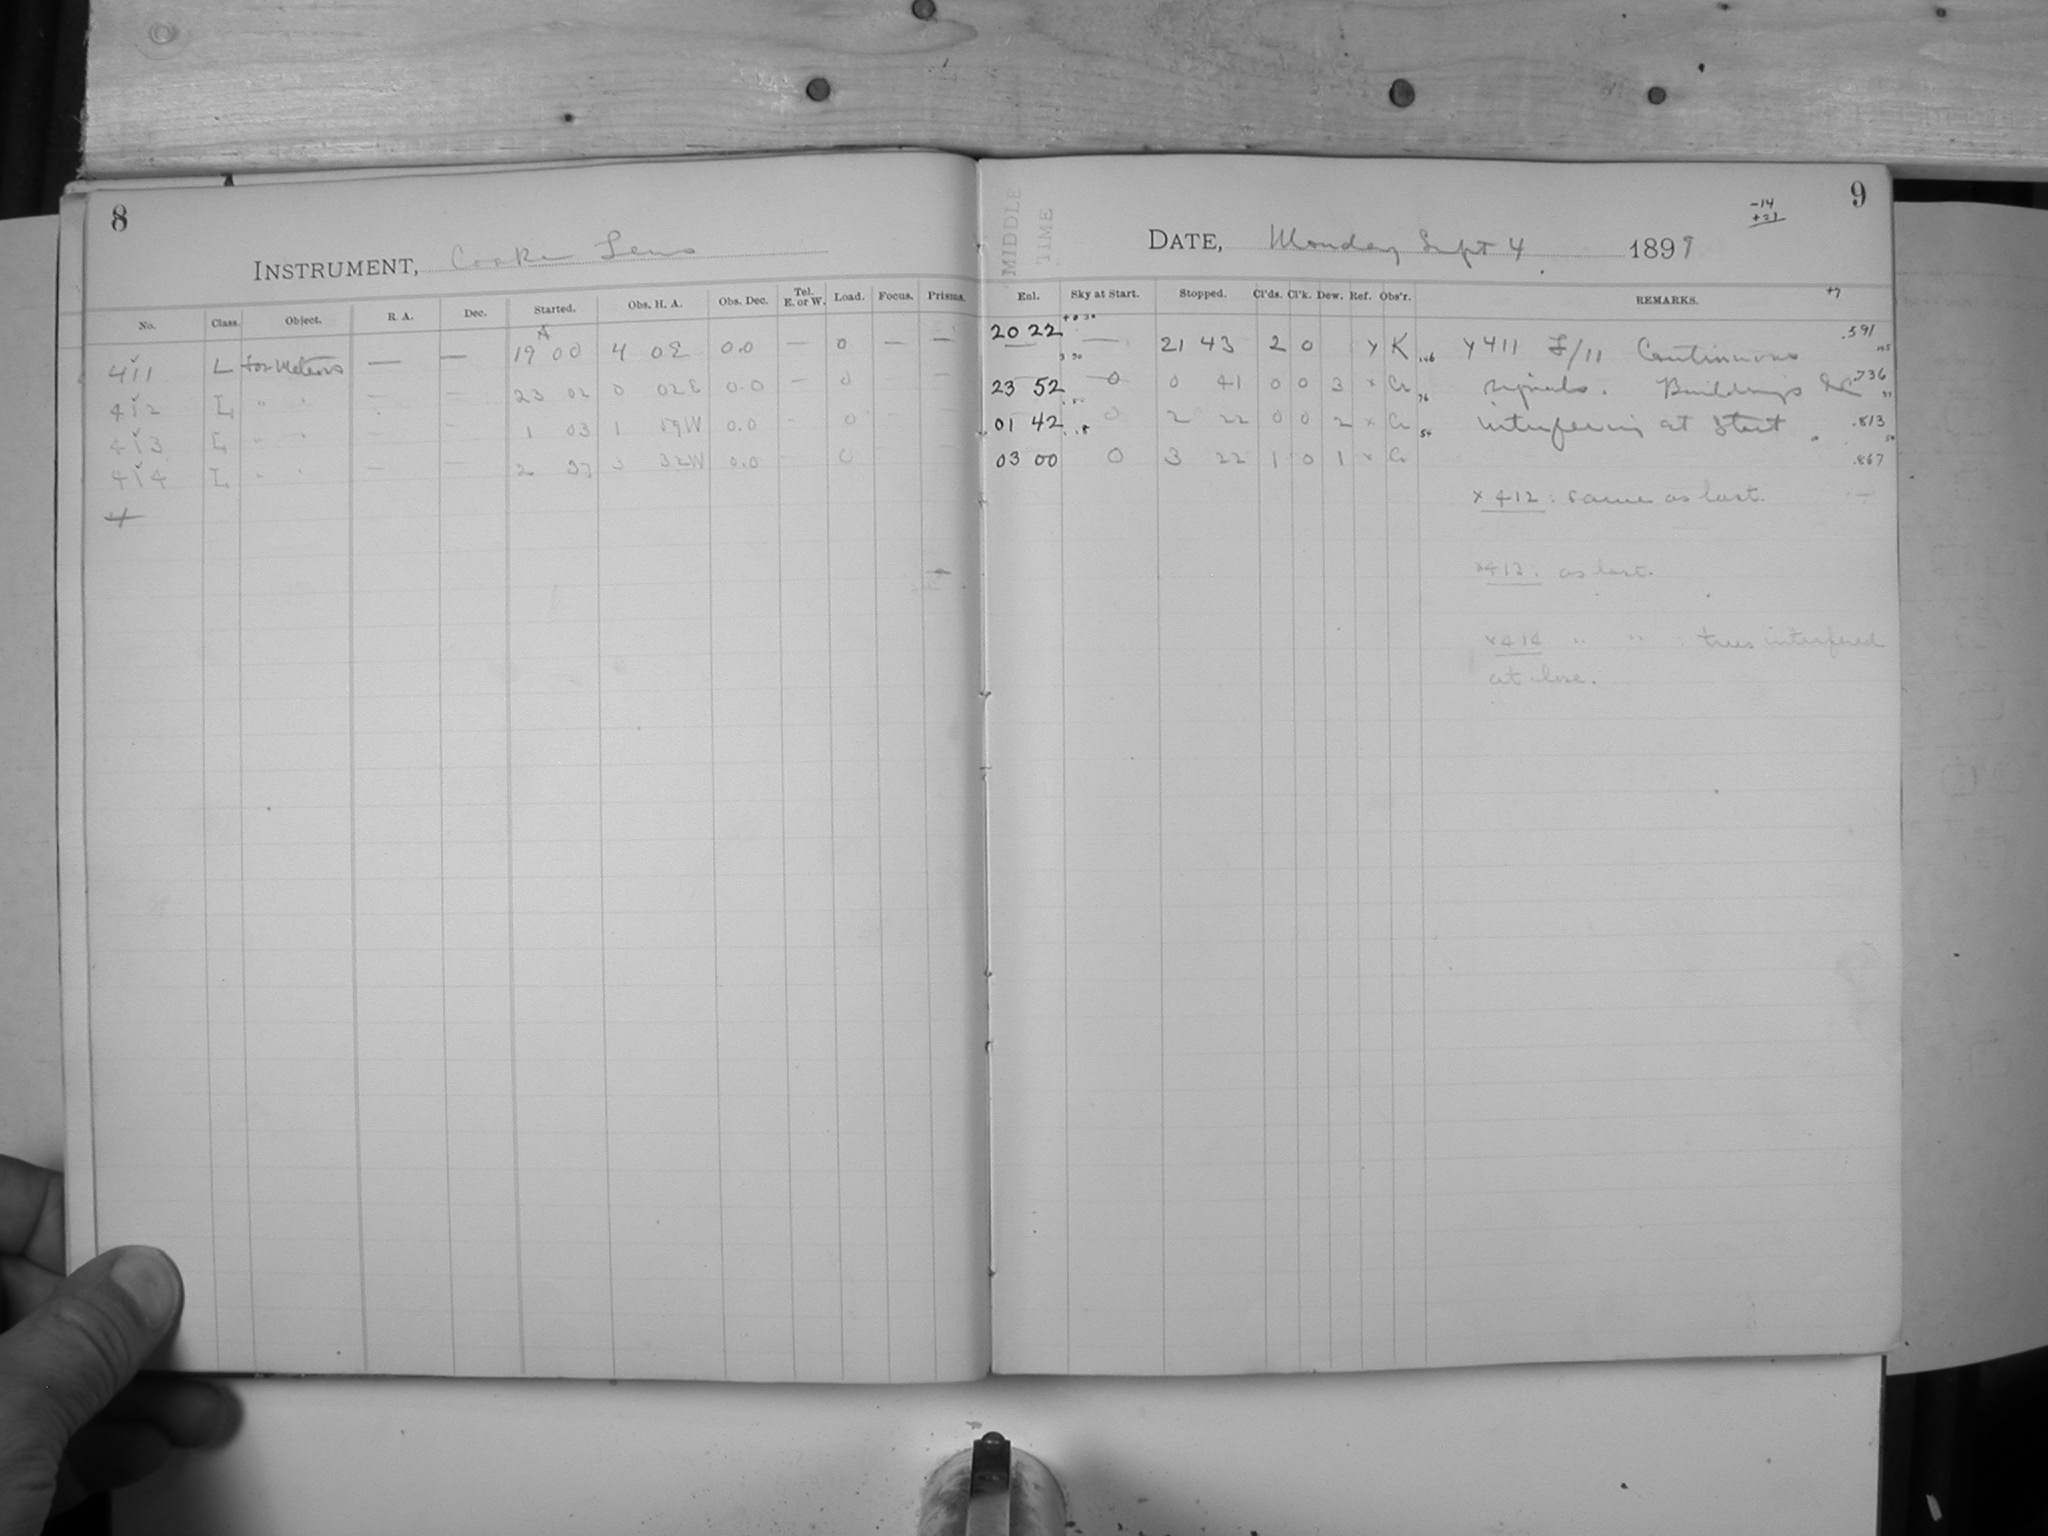 8
INSTRUMENT, Cooke Lens
No. Class. Object. R. A. Dec. Started. Obs. H. A. Obs. Dec. Tel. E. or W. Load. Focus. Prisms.
411 L for Meteors — — 19 00 4 02E 0.0 — 0 — —
412 L " " — — 23 02 0 02E 0.0 — 0 — —
413 L " " — — 1 03 1 59W 0.0 — 0
414 L " — — 2 37 3 32W 0.0 — 0
4
9
-14
+21
MIDDLE
TIME
DATE, Monday Sept 4 1899
+7
Enl. Sky at Start. Stopped. Cl'ds. Cl'k. Dew. Ref. Obs'r. REMARKS.
20 22 — 21 43 2 0 y K y 411 F/11 Continuous .591
23 52 0 0 41 0 0 3 x Cr signals. Buildings &c .736
01 42 0 2 22 0 0 2 x Cr interfering at start .813
03 00 0 3 22 1 0 1 x Cr .867
x 412 : same as last.
x 413. as last.
x 414 " " : trees interfered
at close.